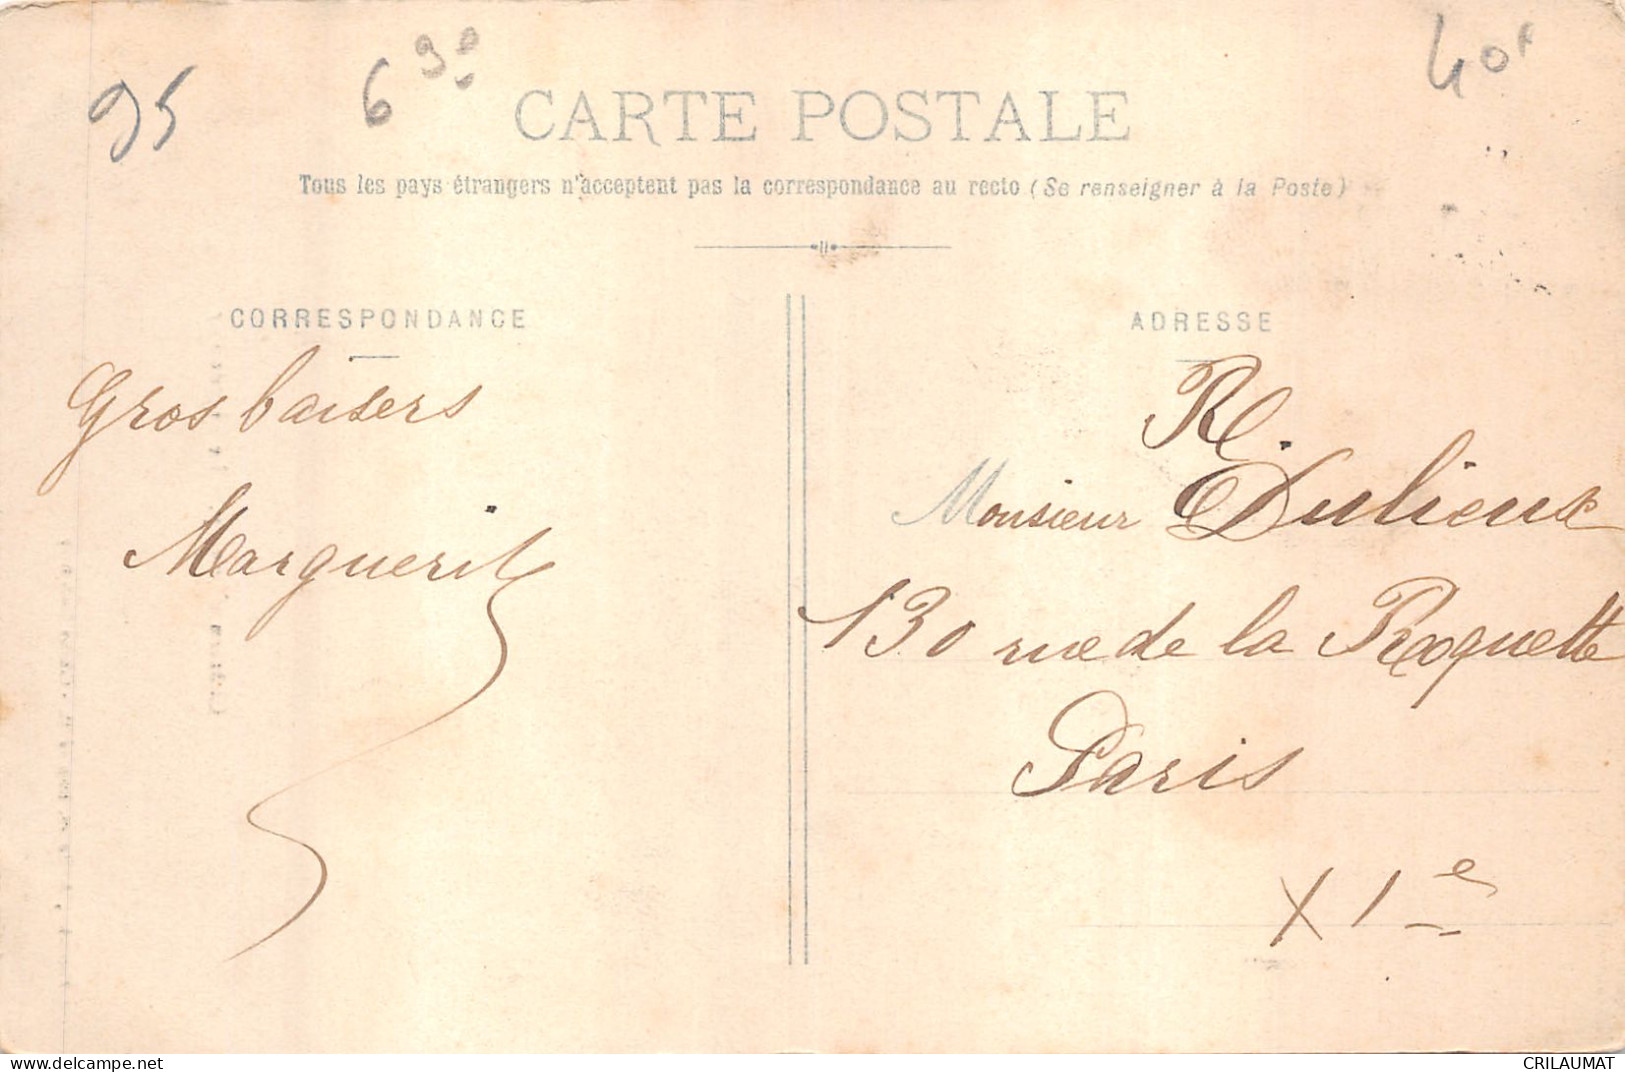 95
6 90
40F
CARTE POSTALE
Tous les pays étrangers n'acceptent pas la correspondance au recto (Se renseigner à la Poste)
CORRESPONDANCE
Gros baisers
Marguerite
ADRESSE
R.
Monsieur Dulieux
130 rue de la Roquette
Paris
XIe
www.delcampe.net
CRILAUMAT